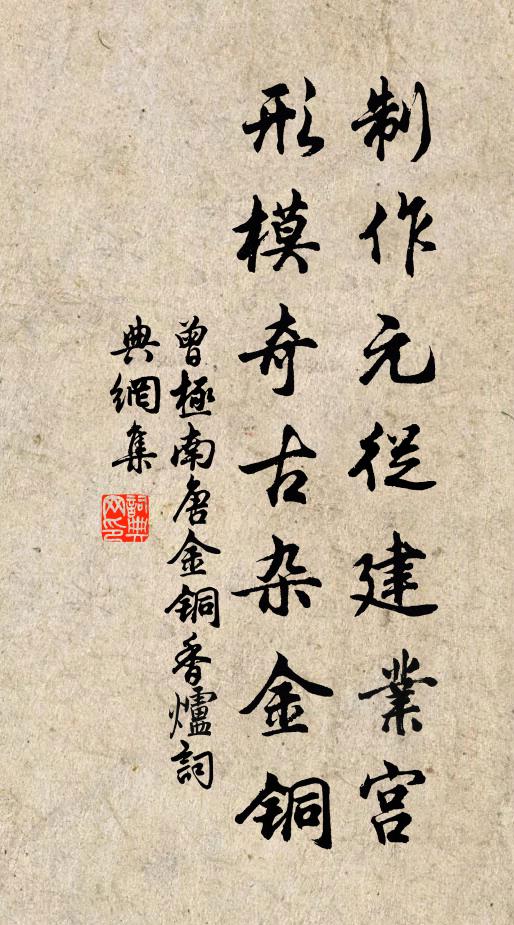 制作元從建業宫
形模奇古杂金铜
曾極南唐金銅香爐詞
典網集
詞典网印